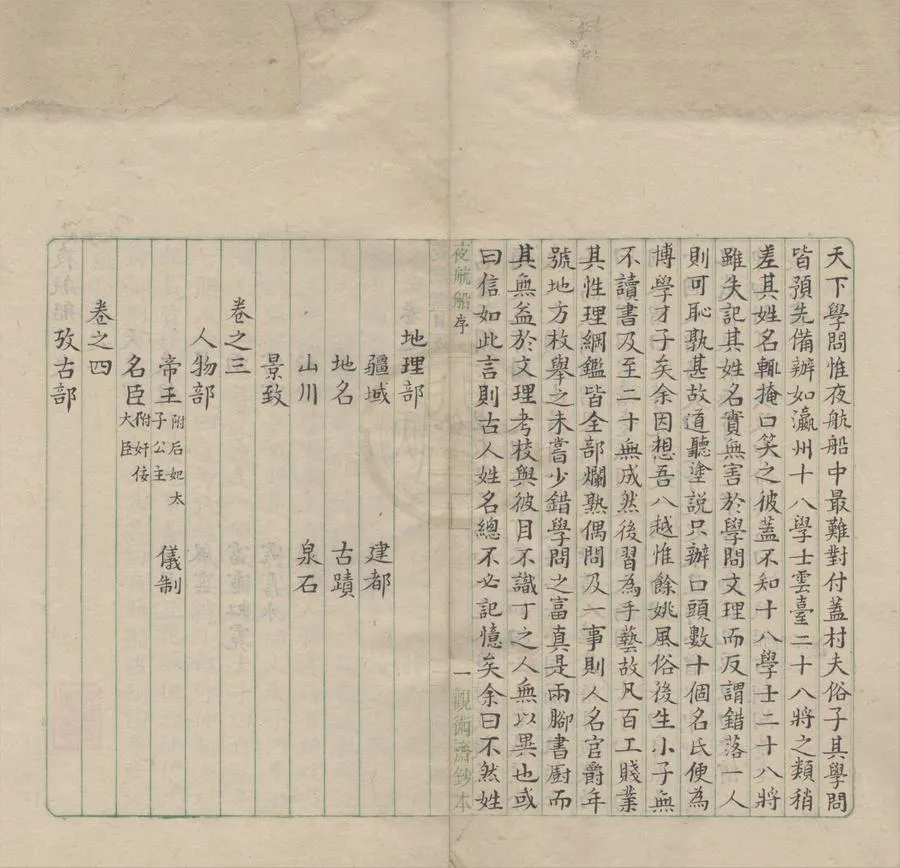 天下學問惟夜航船中最難對付蓋村夫俗子其學問
皆預先備辦如瀛州十八學士雲臺二十八將之類稍
差其姓名輒掩口笑之彼蓋不知十八學士二十八將
雖失記其姓名實無害於學問文理而反謂錯落一人
則可恥孰甚故道聽塗説只辦口頭數十個名氏便為
博學才子矣余因想吾八越惟餘姚風俗後生小子無
不讀書及至二十無成然後習為手藝故凡百工賤業
其性理綱鑑皆全部爛熟偶問及一事則人名官爵年
號地方枚舉之未嘗少錯學問之富真是兩腳書厨而
其無益於文理考校與彼目不識丁之人無以異也或
曰信如此言則古人姓名總不必記憶矣余曰不然姓
夜航船序
一觀術齋鈔本
地理部
疆域 建都
地名 古蹟
山川 泉石
景致
卷之三
人物部
帝王 附后妃太子公主 儀制
名臣 附奸佞大臣
卷之四
攷古部